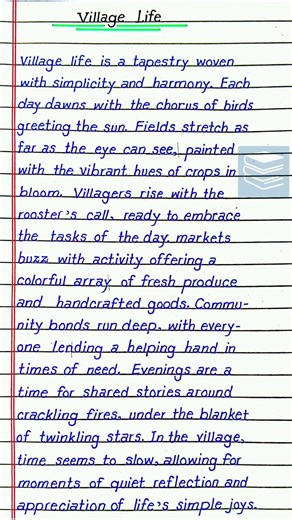 Village Life
Village life is a tapestry woven
with simplicity and harmony. Each
day dawns with the chorus of birds
greeting the sun. Fields stretch as
far as the eye can see, painted
with the vibrant hues of crops in
bloom. Villagers rise with the
rooster's call, ready to embrace
the tasks of the day. markets
buzz with activity offering a
colorful array of fresh produce
and handcrafted goods. Commu-
nity bonds run deep, with every-
one lending a helping hand in
times of need. Evenings are a
time for shared stories around
crackling fires, under the blanket
of twinkling stars. In the village,
time seems to slow, allowing for
moments of quiet reflection and
appreciation of life's simple joys.